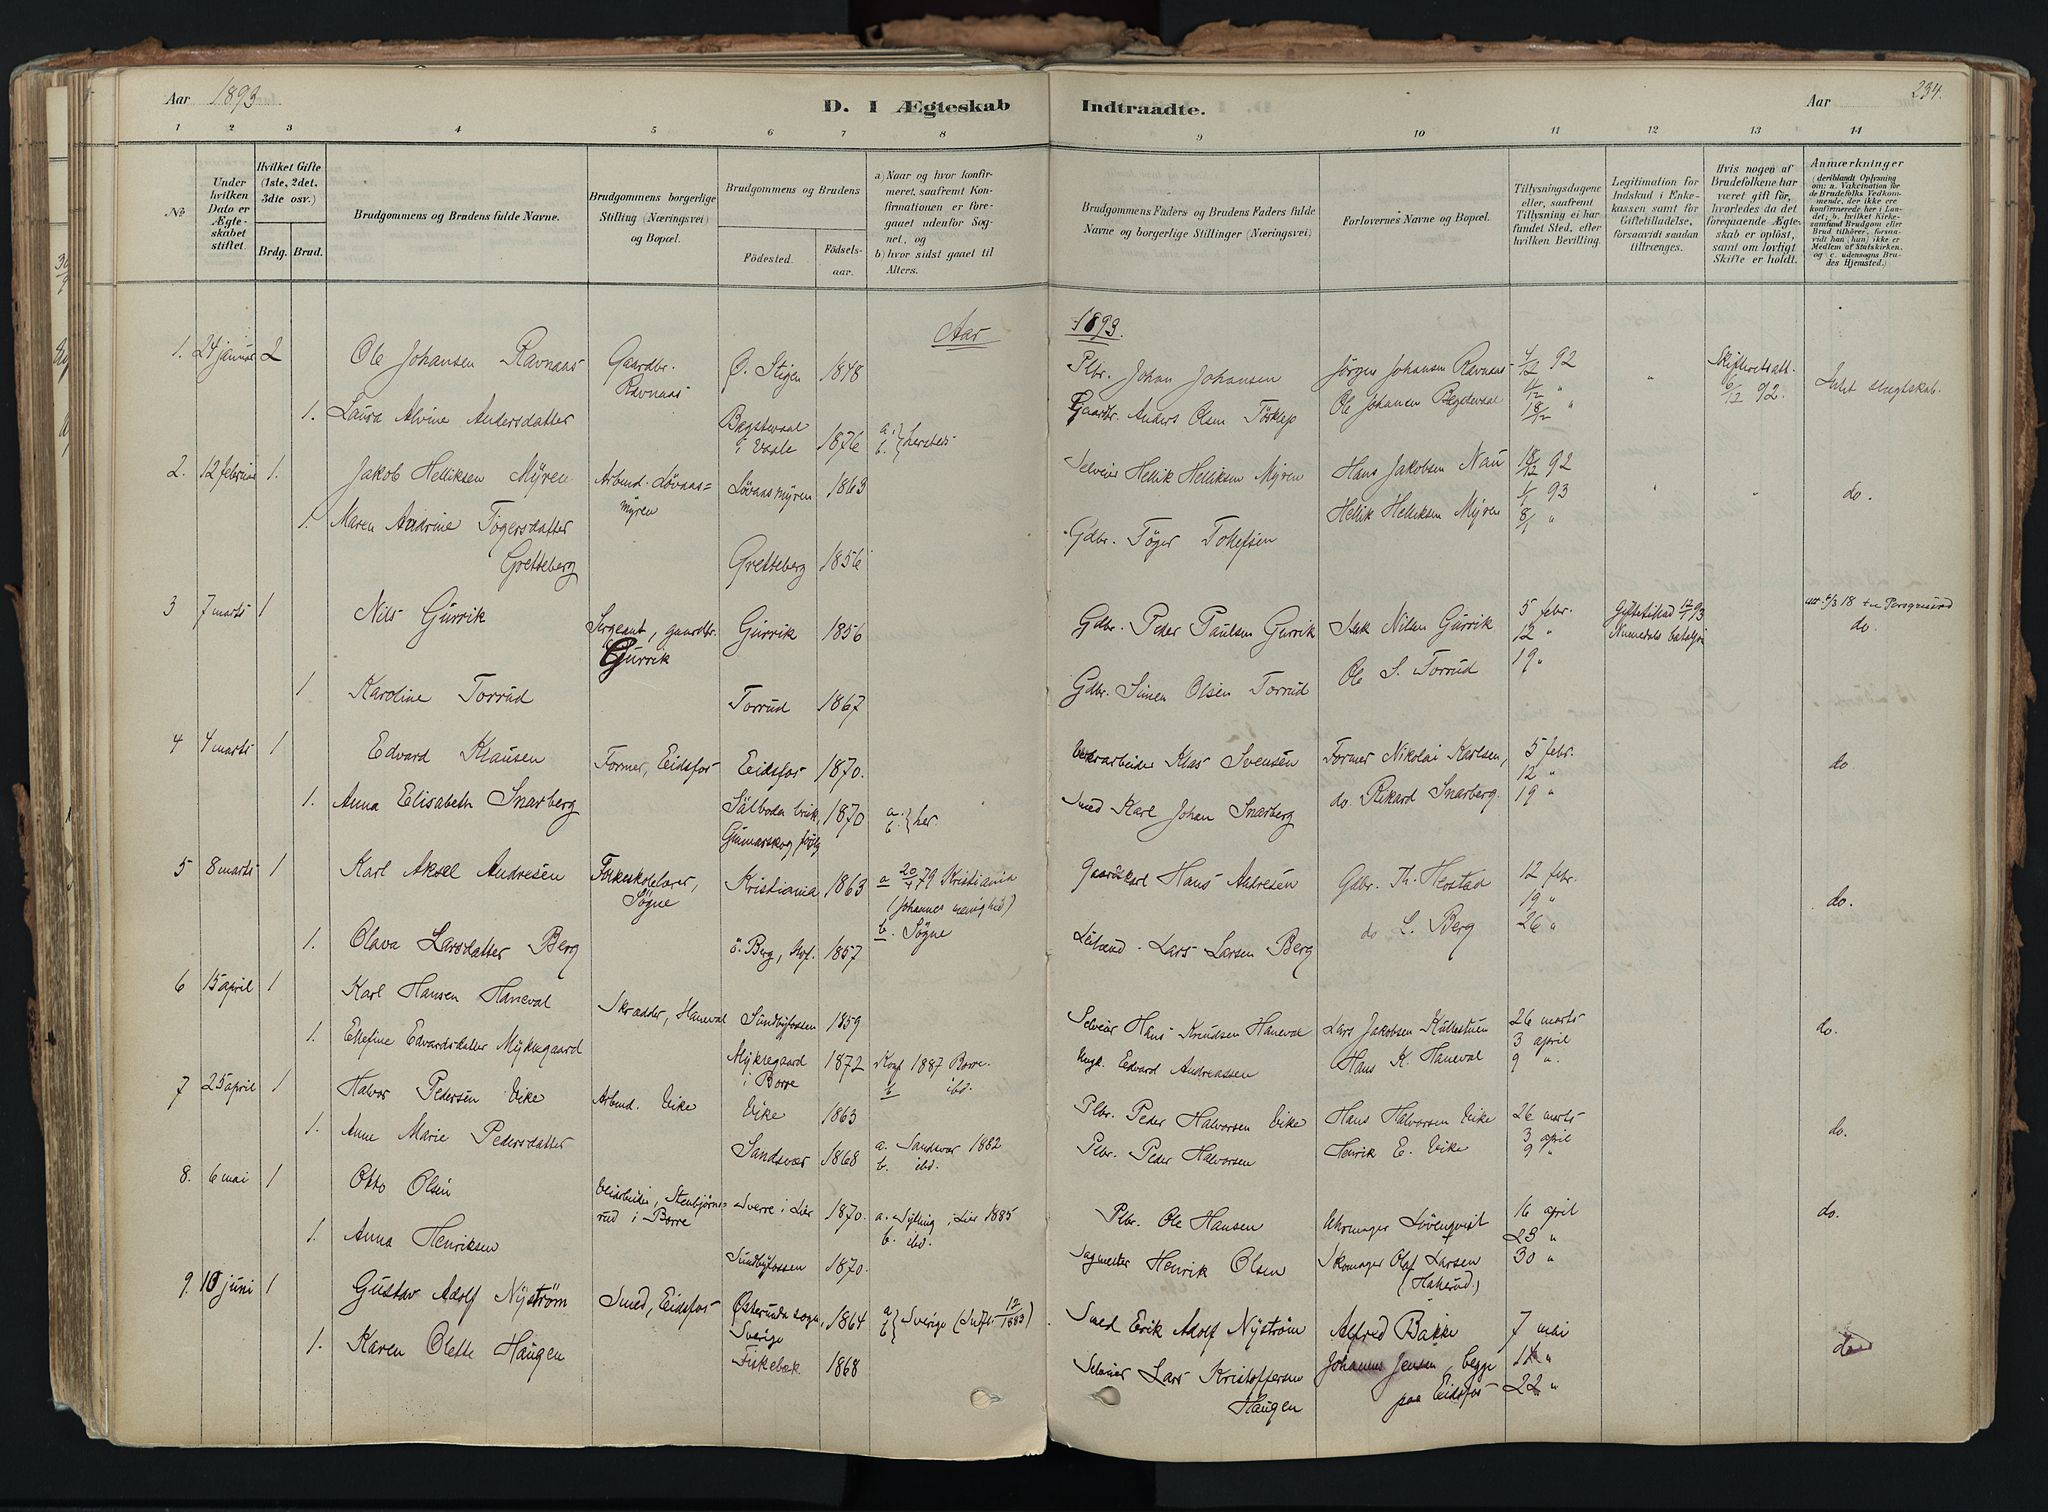 Aar 1893
D. I Ægteskab Indtraadte.
Aar
234.
1 2 3 4 5 6 7 8 9 10 11 12 13 14
No
Under hvilken Dato er Ægteskabet stiftet.
Hvilket Gifte (1ste, 2det, 3die osv.)
Brdg. Brud.
Brudgommens og Brudens fulde Navne.
Brudgommens borgerlige Stilling (Næringsvei) og Bopæl.
Brudgommens og Brudens
Födested. Födselsaar.
a) Naar og hvor konfirmeret, saafremt Konfirmationen er foregaaet udenfor Sognet, og
b) hvor sidst gaaet til Alters.
Brudgommens Faders og Brudens Faders fulde Navne og borgerlige Stillinger (Næringsvei)
Forlovernes Navne og Bopæl.
Tillysningsdagene eller, saafremt Tillysning ei har fundet Sted, efter hvilken Bevilling.
Legitimation for Indskud i Enkekassen samt for Giftetilladelse, forsaavidt saadan tiltrænges.
Hvis nogen af Brudefolkene har været gift før, hvorledes da det foregaaende Ægteskab er opløst, samt om lovligt Skifte er holdt.
Anmærkninger (deriblandt Oplysning om: a. Vakcination for de Brudefolks Vedkommende, der ikke ere konfirmerede her i Landet; b. hvilket Kirkesamfund Brudgom eller Brud tilhører, forsaavidt han (hun) ikke er Medlem af Statskirken, og c. udensogns Brudes Hjemsted.)
Aar 1893.
1. 24 januar 2 Ole Johansen Ravnaas Gaardbr. Ravnaas Ø. Stigen 1848 Plbr. Johan Johansen Jörgen Johansen Ravnaas 4/12 92 " Skifteretsatt. 6/12 92. Intet slegtskab.
1. Laura Alvine Andersdatter i Vaale 1876 a. b. } Gaardbr. Anders Olsen Ole Johansen 11/12 " 18/12 "
2. 12 februar 1. Jakob Helliksen Myren Arbmd. Lövaasmyren Lövaasmyren 1863 Selveier Hellik Helliksen Myren Hans Jakobsen Nau 18/12 92 " " do.
1. Maren Andrine Tögersdatter Gretteberg Gretteberg 1856 Gdbr. Töger Tollefsen Hellik Helliksen Myren 1/1 93 8/1 "
3 7 marts 1 Nils Gurrik Sergeant, gaardbr. Gurrik Gurrik 1856 Gdbr. Peder Paulsen Gurrik Isak Nilsen Gurrik 5 febr. 12 " 19 " Giftetillad 12/1 93 Numedals bataljon do.
1 Karoline Torrud Torrud 1867 Gdbr. Simen Olsen Torrud Ole S. Torrud
4 4 marts 1 Edvard Klausen Former, Eidsfos Eidsfos 1870. Klas Svensen Former Nikolai Karlsen, 5 febr. 12 " 19 " do.
1. Anna Elisabeth Snarberg Sälboda bruk, Gunnarskog 1870 a. b. } her. Smed Karl Johan Snarberg do. Rikard Snarberg.
5 8 marts 1 Karl Aksel Andresen Folkeskolelærer, Sögne Kristiania 1863 a 20/4 79 Kristiania (Johannes menighed) b. Sögne Gaardskarl Hans Andresen Gdbr. Th. Hostad 12 febr. 19 " 26 " do.
1. Olava Larsdatter Berg ö. Berg, Hof. 1857 Lars Larsen Berg do L. Berg
6 15 april 1 Karl Hansen Haneval Skrædder, Haneval Sundbyfossen 1859 Selveier Hans Knudsen Haneval Lars Jakobsen Kullestuen 26 marts 3 april 9 " do.
1. Ellefine Edvardsdatter Mykkegaard Mykkegaard i Borre 1872 Konf 1887 Borre. b ibd. Ungk. Edvard Andreassen Hans K. Haneval
7 25 april 1 Halvor Pedersen Vike Arbmd. Vike Vike 1863 Plbr. Peder Halvorsen Vike Hans Halvorsen Vike 26 marts 3 april 9 " do.
1. Anne Marie Pedersdatter Sandsvær 1868 a. Sandsvær 1882 b. ibd. Plbr. Peder Halvorsen Henrik E. Vike
8. 6 mai 1 Otto Olsen Veiarbeider, Stenbjørnsrud i Borre Sverre i Lier 1870. a. Sylling i Lier 1885 b. ibd. Plbr. Ole Hansen Uhrmager Lövenqvist 16 april 23 " 30 " do.
1. Anna Henriksen Sundbyfossen 1870. Sagmester Henrik Olsen Skomager Olaf Larsen (Hakerud)
9. 10 juni 1 Gustav Adolf Nyström Smed, Eidsfos Österunda sogn, Sverige 1864 a b } Sverige (Indfl. 12/1883) Smed Erik Adolf Nyström Alfred Bakke 7 mai 14 " 22 " do
1. Karen Olette Haugen Fiskebæk 1868 Selveier Lars Kristoffersen Haugen Johannes Jensen, begge paa Eidsfos